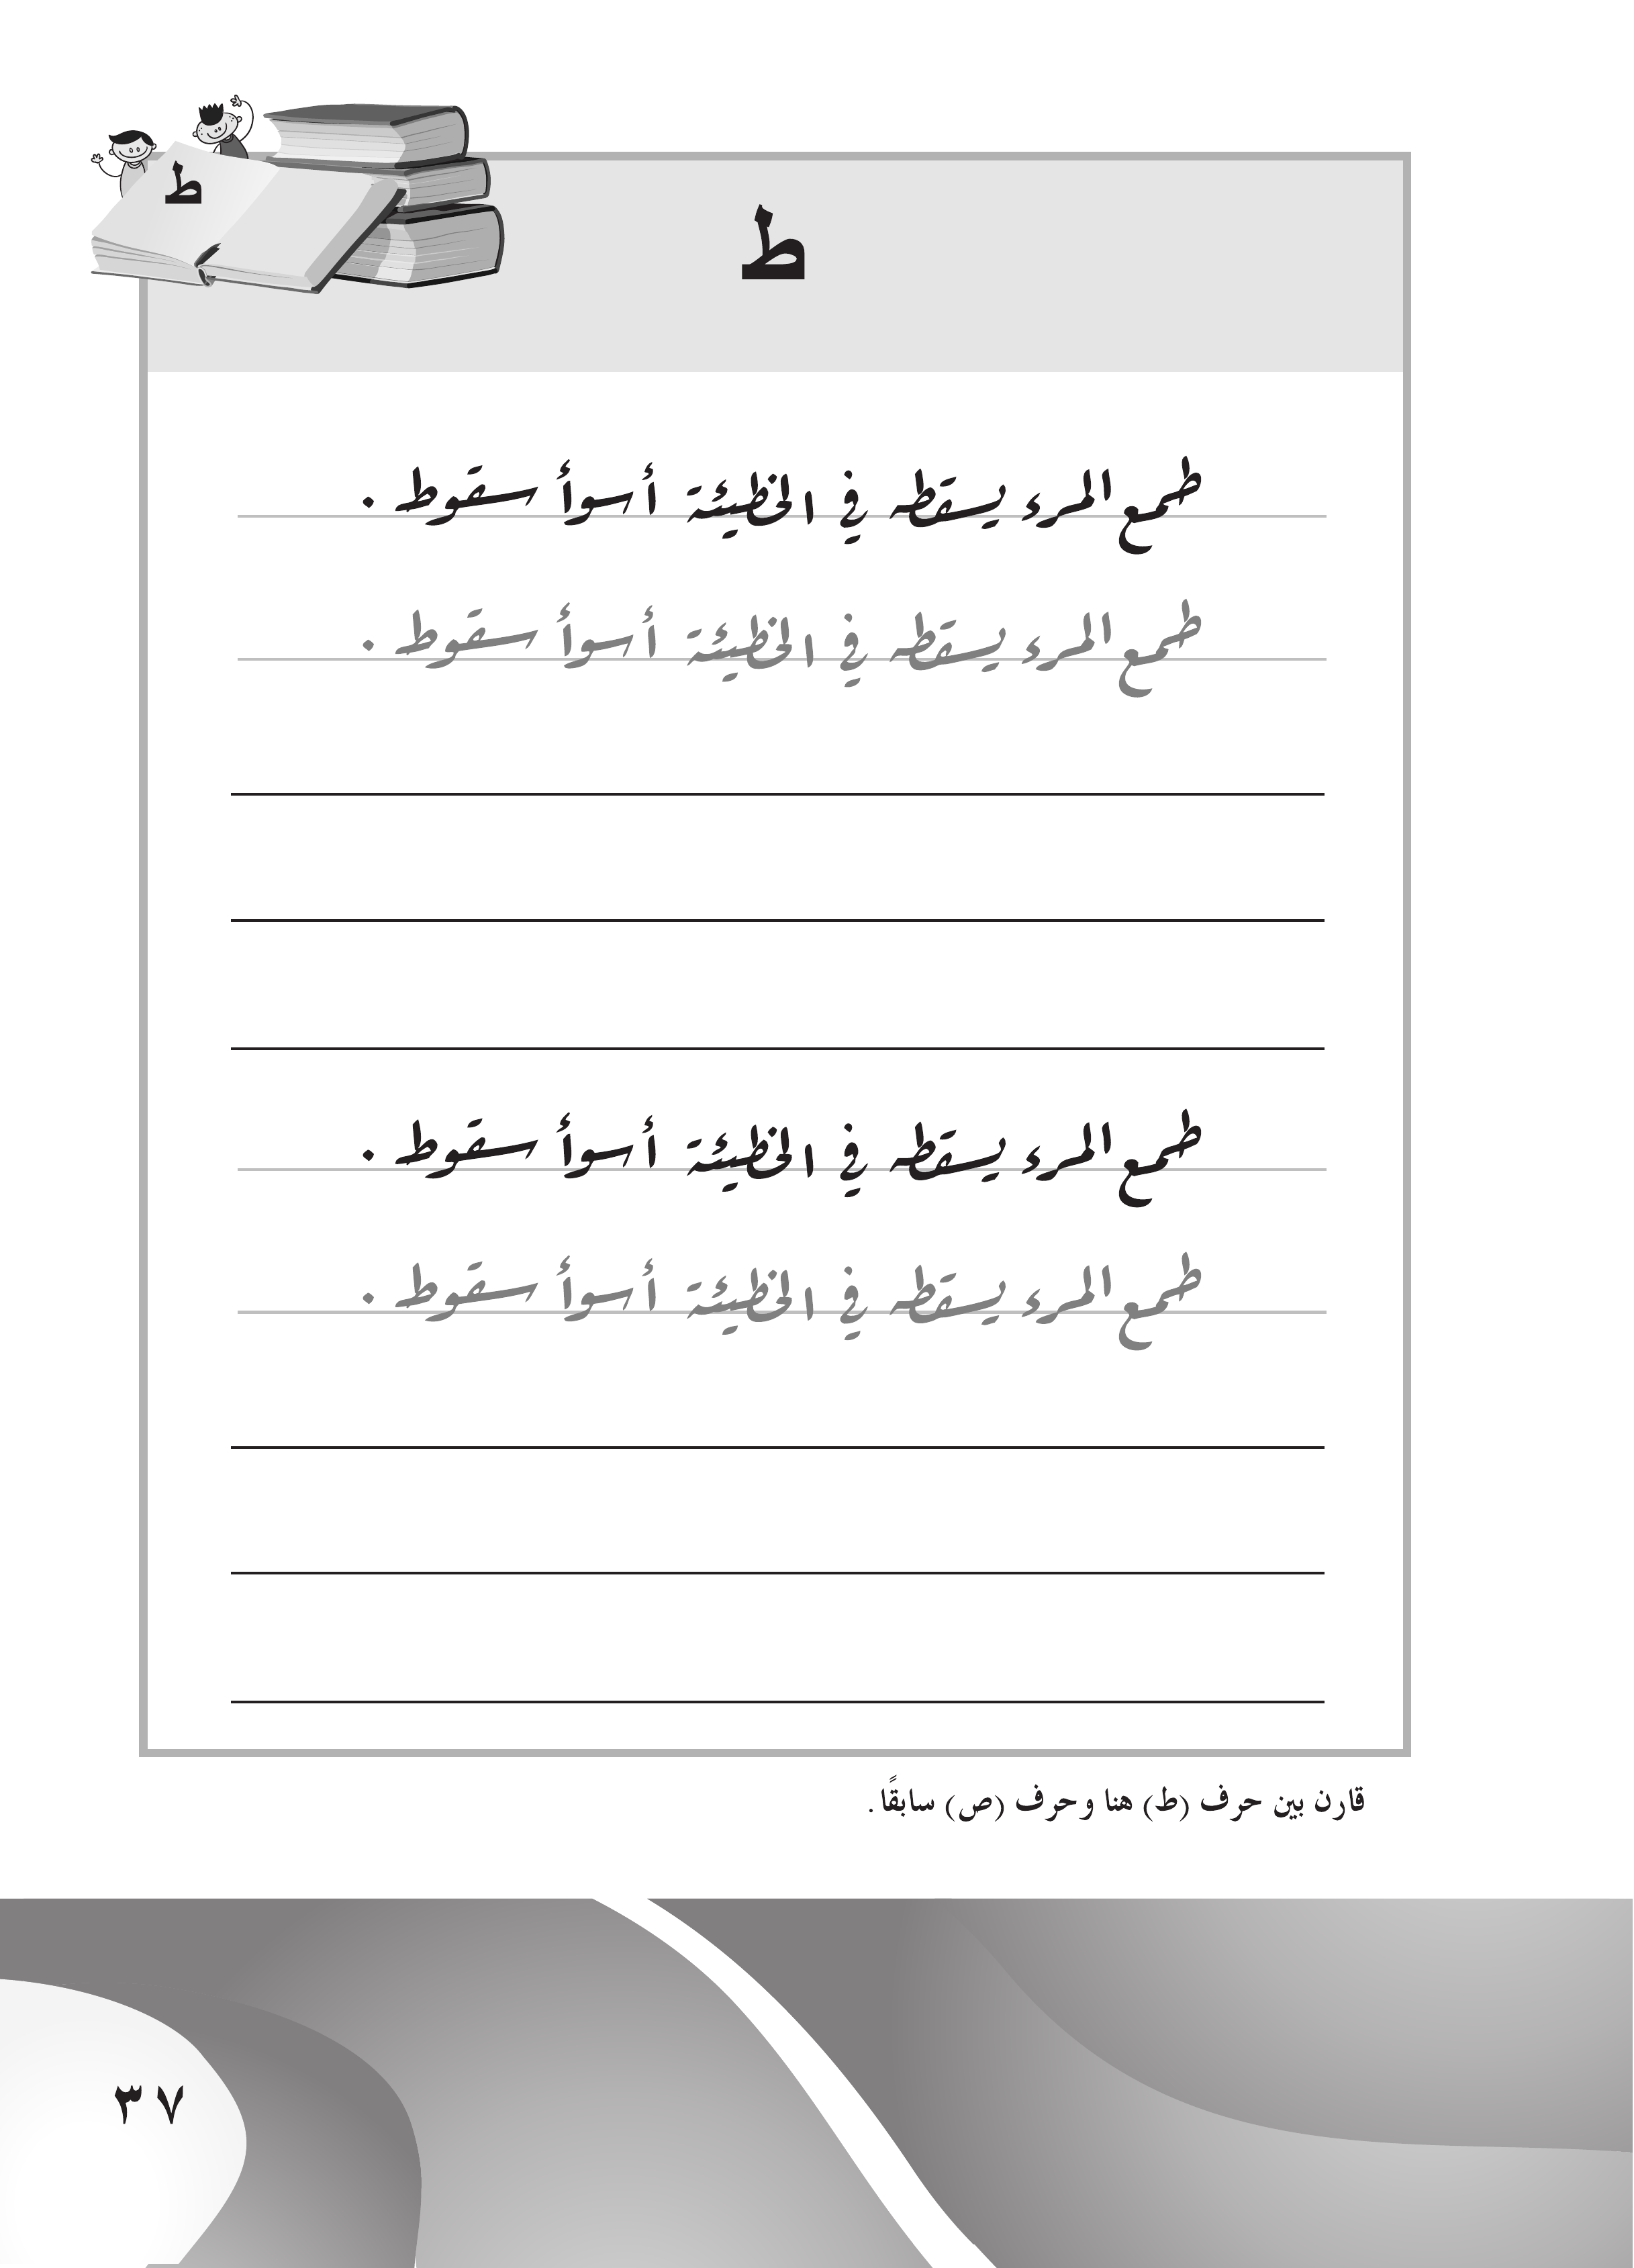 ط
ط
طمع المرء يسقطه في الخطيئة أسوأ سقوط .
طمع المرء يسقطه في الخطيئة أسوأ سقوط .
طمع المرء يسقطه في الخطيئة أسوأ سقوط .
طمع المرء يسقطه في الخطيئة أسوأ سقوط .
قارن بين حرف (ط) هنا وحرف (ص) سابقًا .
٣٧